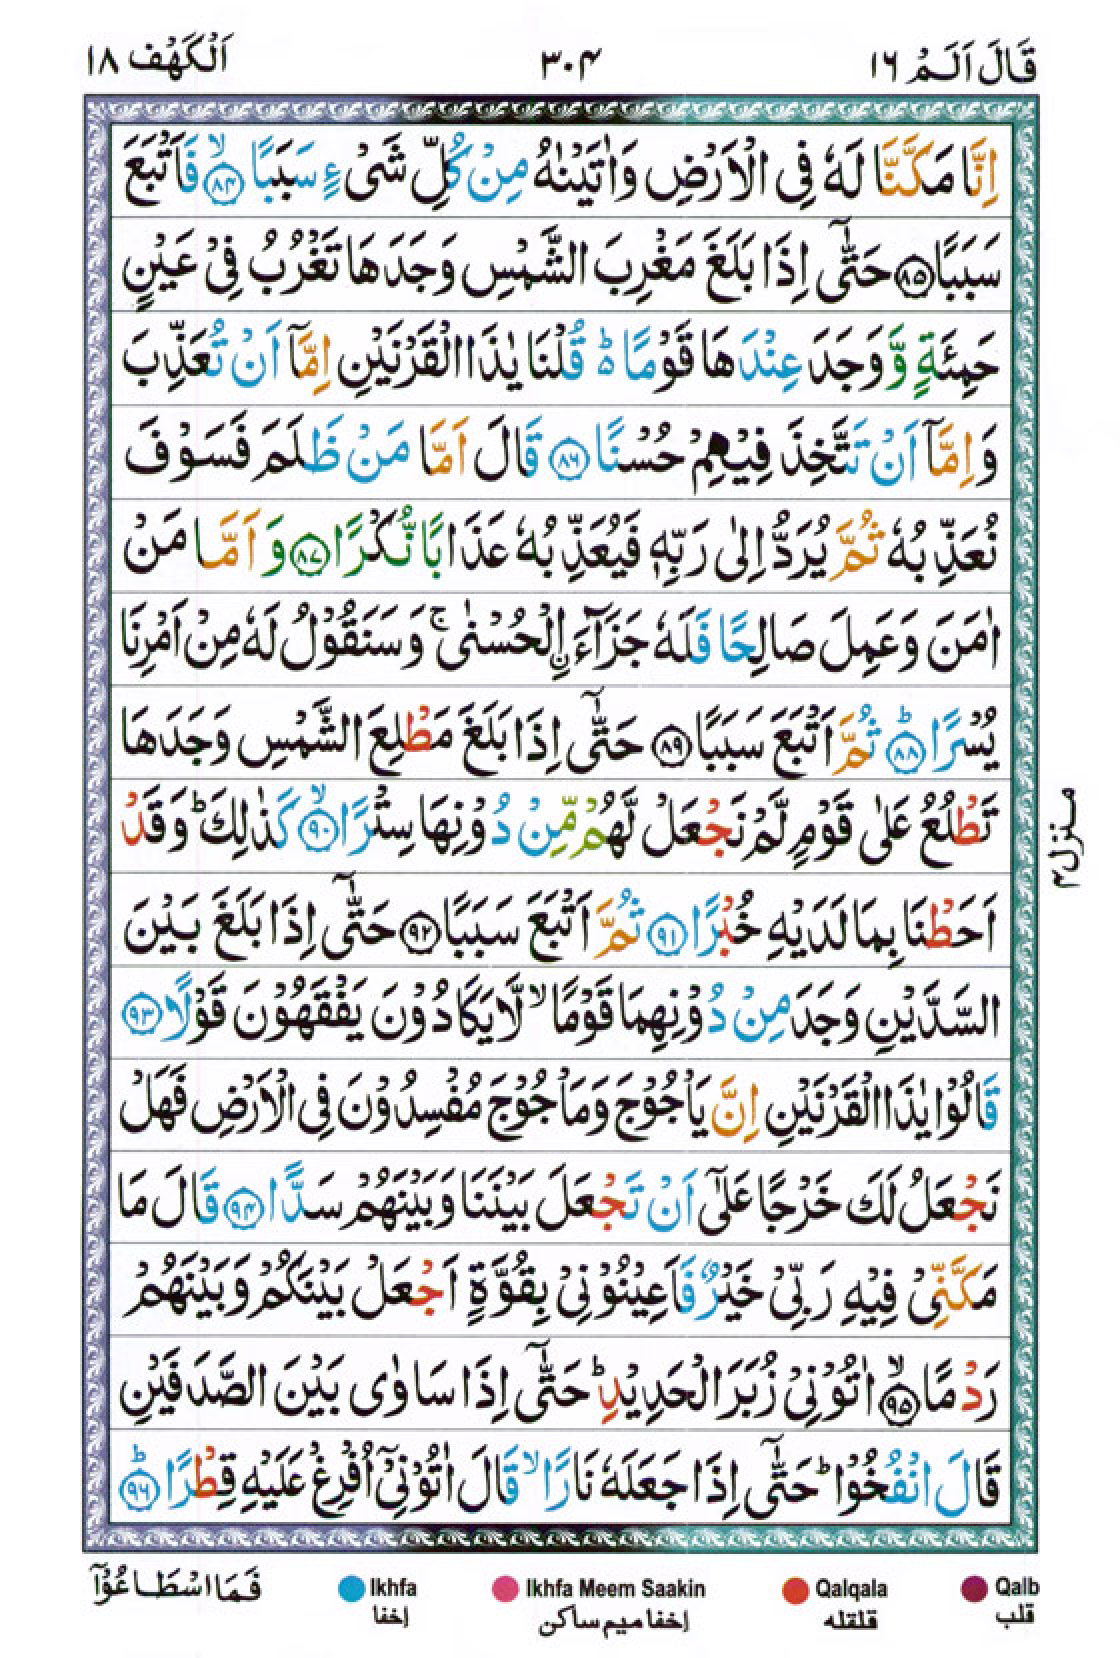 قَالَ اَلَمْ ١٦
٣٠۴
اَلْكَهْف ١٨
اِنَّا مَكَّنَّا لَهٗ فِى الْاَرْضِ وَاٰتَيْنٰهُ مِنْ كُلِّ شَىْءٍ سَبَبًا ۙ‏﴿۸۴﴾ فَاَتْبَعَ
سَبَبًا ﴿۸۵﴾ حَتّٰٓى اِذَا بَلَغَ مَغْرِبَ الشَّمْسِ وَجَدَهَا تَغْرُبُ فِىْ عَيْنٍ
حَمِئَةٍ وَّ وَجَدَ عِنْدَهَا قَوْمًا ؕ۬ قُلْنَا يٰذَا الْقَرْنَيْنِ اِمَّاۤ اَنْ تُعَذِّبَ
وَاِمَّاۤ اَنْ تَتَّخِذَ فِيْهِمْ حُسْنًا ﴿۸۶﴾ قَالَ اَمَّا مَنْ ظَلَمَ فَسَوْفَ
نُعَذِّبُهٗ ثُمَّ يُرَدُّ اِلٰى رَبِّهٖ فَيُعَذِّبُهٗ عَذَابًا نُّكْرًا ﴿۸۷﴾ وَ اَمَّا مَنْ
اٰمَنَ وَعَمِلَ صَالِحًا فَلَهٗ جَزَآءَ ۨالْحُسْنٰى ۚ وَسَنَقُوْلُ لَهٗ مِنْ اَمْرِنَا
يُسْرًا ؕ﴿۸۸﴾ ثُمَّ اَتْبَعَ سَبَبًا ﴿۸۹﴾ حَتّٰٓى اِذَا بَلَغَ مَطْلِعَ الشَّمْسِ وَجَدَهَا
تَطْلُعُ عَلٰى قَوْمٍ لَّمْ نَجْعَلْ لَّهُمْ مِّنْ دُوْنِهَا سِتْرًا ۙ﴿۹۰﴾ كَذٰلِكَ ؕ وَقَدْ
اَحَطْنَا بِمَا لَدَيْهِ خُبْرًا ﴿۹۱﴾ ثُمَّ اَتْبَعَ سَبَبًا ﴿۹۲﴾ حَتّٰٓى اِذَا بَلَغَ بَيْنَ
السَّدَّيْنِ وَجَدَ مِنْ دُوْنِهِمَا قَوْمًا ۙ لَّا يَكَادُوْنَ يَفْقَهُوْنَ قَوْلًا ﴿۹۳﴾
قَالُوْا يٰذَا الْقَرْنَيْنِ اِنَّ يَاْجُوْجَ وَمَاْجُوْجَ مُفْسِدُوْنَ فِى الْاَرْضِ فَهَلْ
نَجْعَلُ لَكَ خَرْجًا عَلٰٓى اَنْ تَجْعَلَ بَيْنَنَا وَبَيْنَهُمْ سَدًّا ﴿۹۴﴾ قَالَ مَا
مَكَّنِّىْ فِيْهِ رَبِّىْ خَيْرٌ فَاَعِيْنُوْنِىْ بِقُوَّةٍ اَجْعَلْ بَيْنَكُمْ وَبَيْنَهُمْ
رَدْمًا ۙ﴿۹۵﴾ اٰتُوْنِىْ زُبَرَ الْحَدِيْدِ ؕ حَتّٰٓى اِذَا سَاوٰى بَيْنَ الصَّدَفَيْنِ
قَالَ انْفُخُوْا ؕ حَتّٰٓى اِذَا جَعَلَهٗ نَارًا ۙ قَالَ اٰتُوْنِىْۤ اُفْرِغْ عَلَيْهِ قِطْرًا ؕ﴿۹۶﴾
منزل۴
فَمَا اسْطَاعُوْۤا
Ikhfa
اِخفا
Ikhfa Meem Saakin
اِخفا ميم ساكن
Qalqala
قلقله
Qalb
قلب